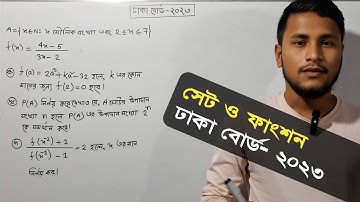 ঢাকা বোর্ড-২০২৩
A={x∈N: x মৌলিক সংখ্যা এবং 2≤x≤7}
f(x) = 4x-5 / 3x-2
ক) f(a) = 2a³+ka²-32 হলে, k এর কোন
মানের জন্য f(2)=0 হবে।
খ) P(A) নির্ণয় করে দেখাও যে, A সেটের উপাদান
সংখ্যা n হলে P(A) এর উপাদান সংখ্যা 2ⁿ
কে সমর্থন করে।
গ) f(x⁻²)+1 / f(x⁻²)-1 = 2 হলে, x এর মান
নির্ণয় কর।
সেট ও ফাংশন
ঢাকা বোর্ড- ২০২৩